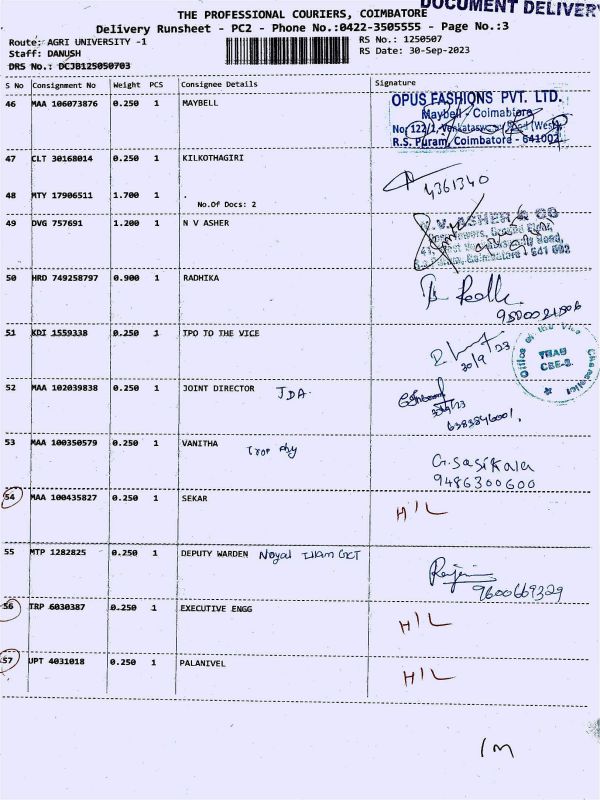 DOCUMENT DELIVERY
THE PROFESSIONAL COURIERS, COIMBATORE
Delivery Runsheet - PC2 - Phone No.:0422-3505555 - Page No.:3
Route: AGRI UNIVERSITY -1 RS No.: 1250507
Staff: DANUSH RS Date: 30-Sep-2023
DRS No.: DCJB125050703
S No Consignment No Weight PCS Consignee Details Signature
46 MAA 106073876 0.250 1 MAYBELL
OPUS FASHIONS PVT. LTD.
Maybell - Coimabtore
No. 122/1, Venkataswamy Road (West)
R.S. Puram, Coimbatore - 641002
47 CLT 30168014 0.250 1 KILKOTHAGIRI
4361340
48 MTY 17906511 1.700 1 .
No.Of Docs: 2
49 DVG 757691 1.200 1 N V ASHER
N. V. ASHER & CO
50 HRD 749258797 0.900 1 RADHIKA
51 KDI 1559338 0.250 1 TPO TO THE VICE
30/9/23
Office of the Vice Chancellor
TNAU
CBE-3.
52 MAA 102039838 0.250 1 JOINT DIRECTOR JDA.
6383846001.
53 MAA 100350579 0.250 1 VANITHA
G. Sasikala
9486300600
54 MAA 100435827 0.250 1 SEKAR H/L
55 MTP 1282825 0.250 1 DEPUTY WARDEN
9600669329
56 TRP 6030387 0.250 1 EXECUTIVE ENGG H/L
57 UPT 4031018 0.250 1 PALANIVEL H/L